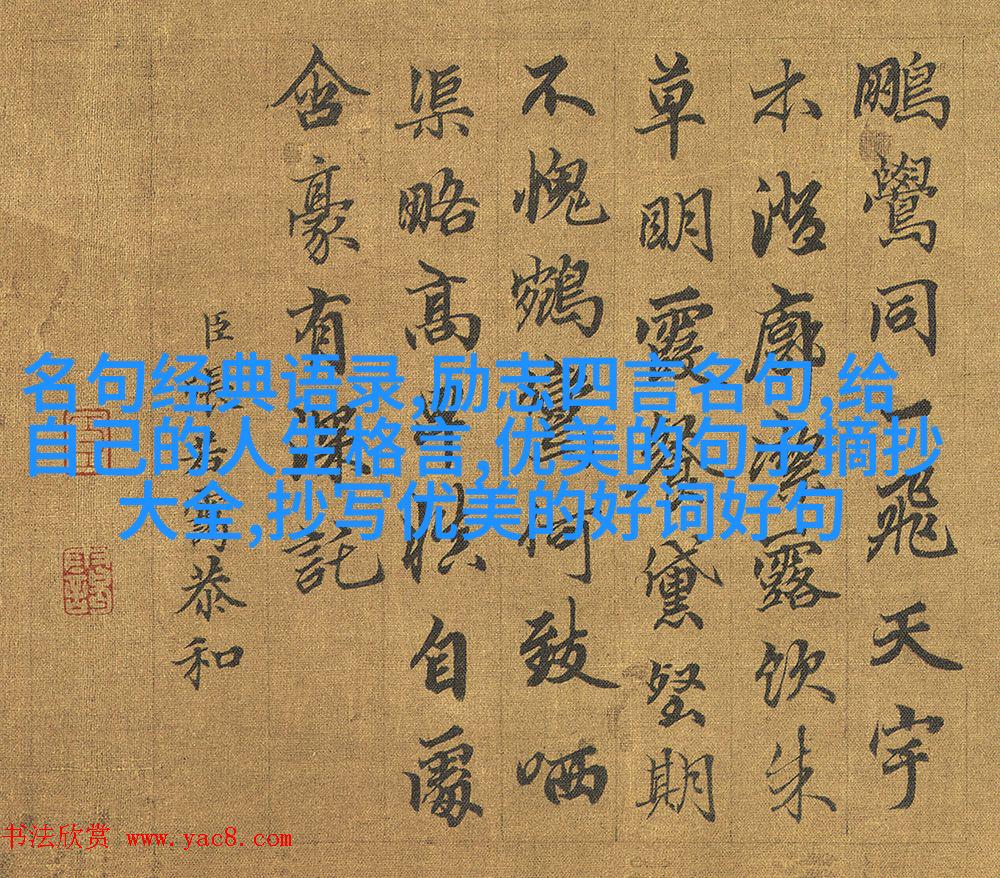 鵬鷽同一飛天宇
木澄廓露飲朱
草明霞黛堅期
不愧鵷鸞何致哂
渠略高自
含豪有託
臣恭和
名句经典语录,励志四言名句,给
自己的人生格言,优美的句子摘抄
大全,抄写优美的好词好句
书法欣赏 www.yac8.com